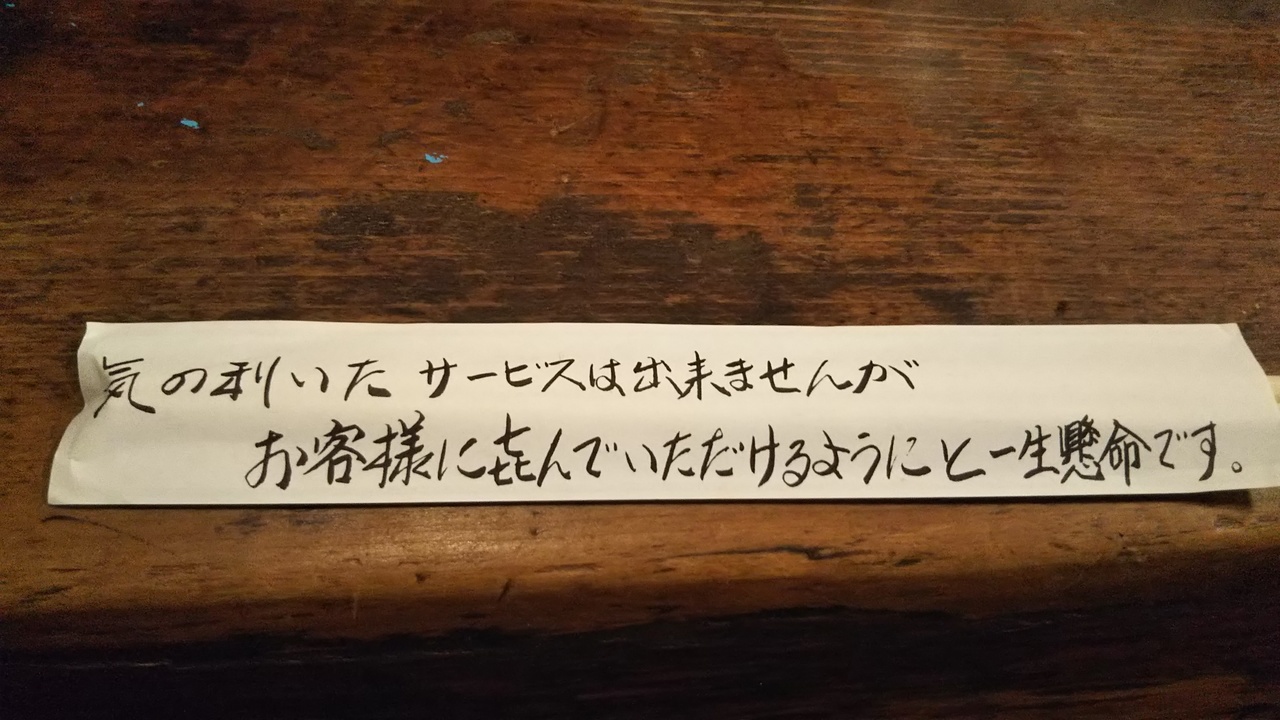 気の利いたサービスは出来ませんが
お客様に㐂んでいただけるようにと一生懸命です。